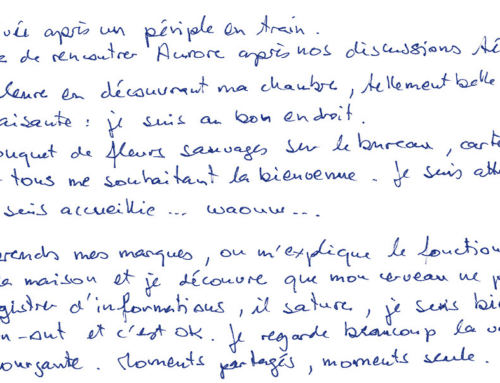 uée après un périple en train.
z de rencontrer Aurore après nos discussions té
leure en découvrant ma chambre, tellement belle
aisante : je suis au bon endroit.
ouquet de fleurs sauvages sur le bureau, carte
tous me souhaitant la bienvenue. Je suis atte
suis accueillie ... waouw...
rends mes marques, on m'explique le fonction
a maison et je découvre que mon cerveau ne p
gistrer d'informations, il sature, je suis bie
n-out et c'est OK. Je regarde beaucoup la v
ourgante. Moments partagés, moments seule.